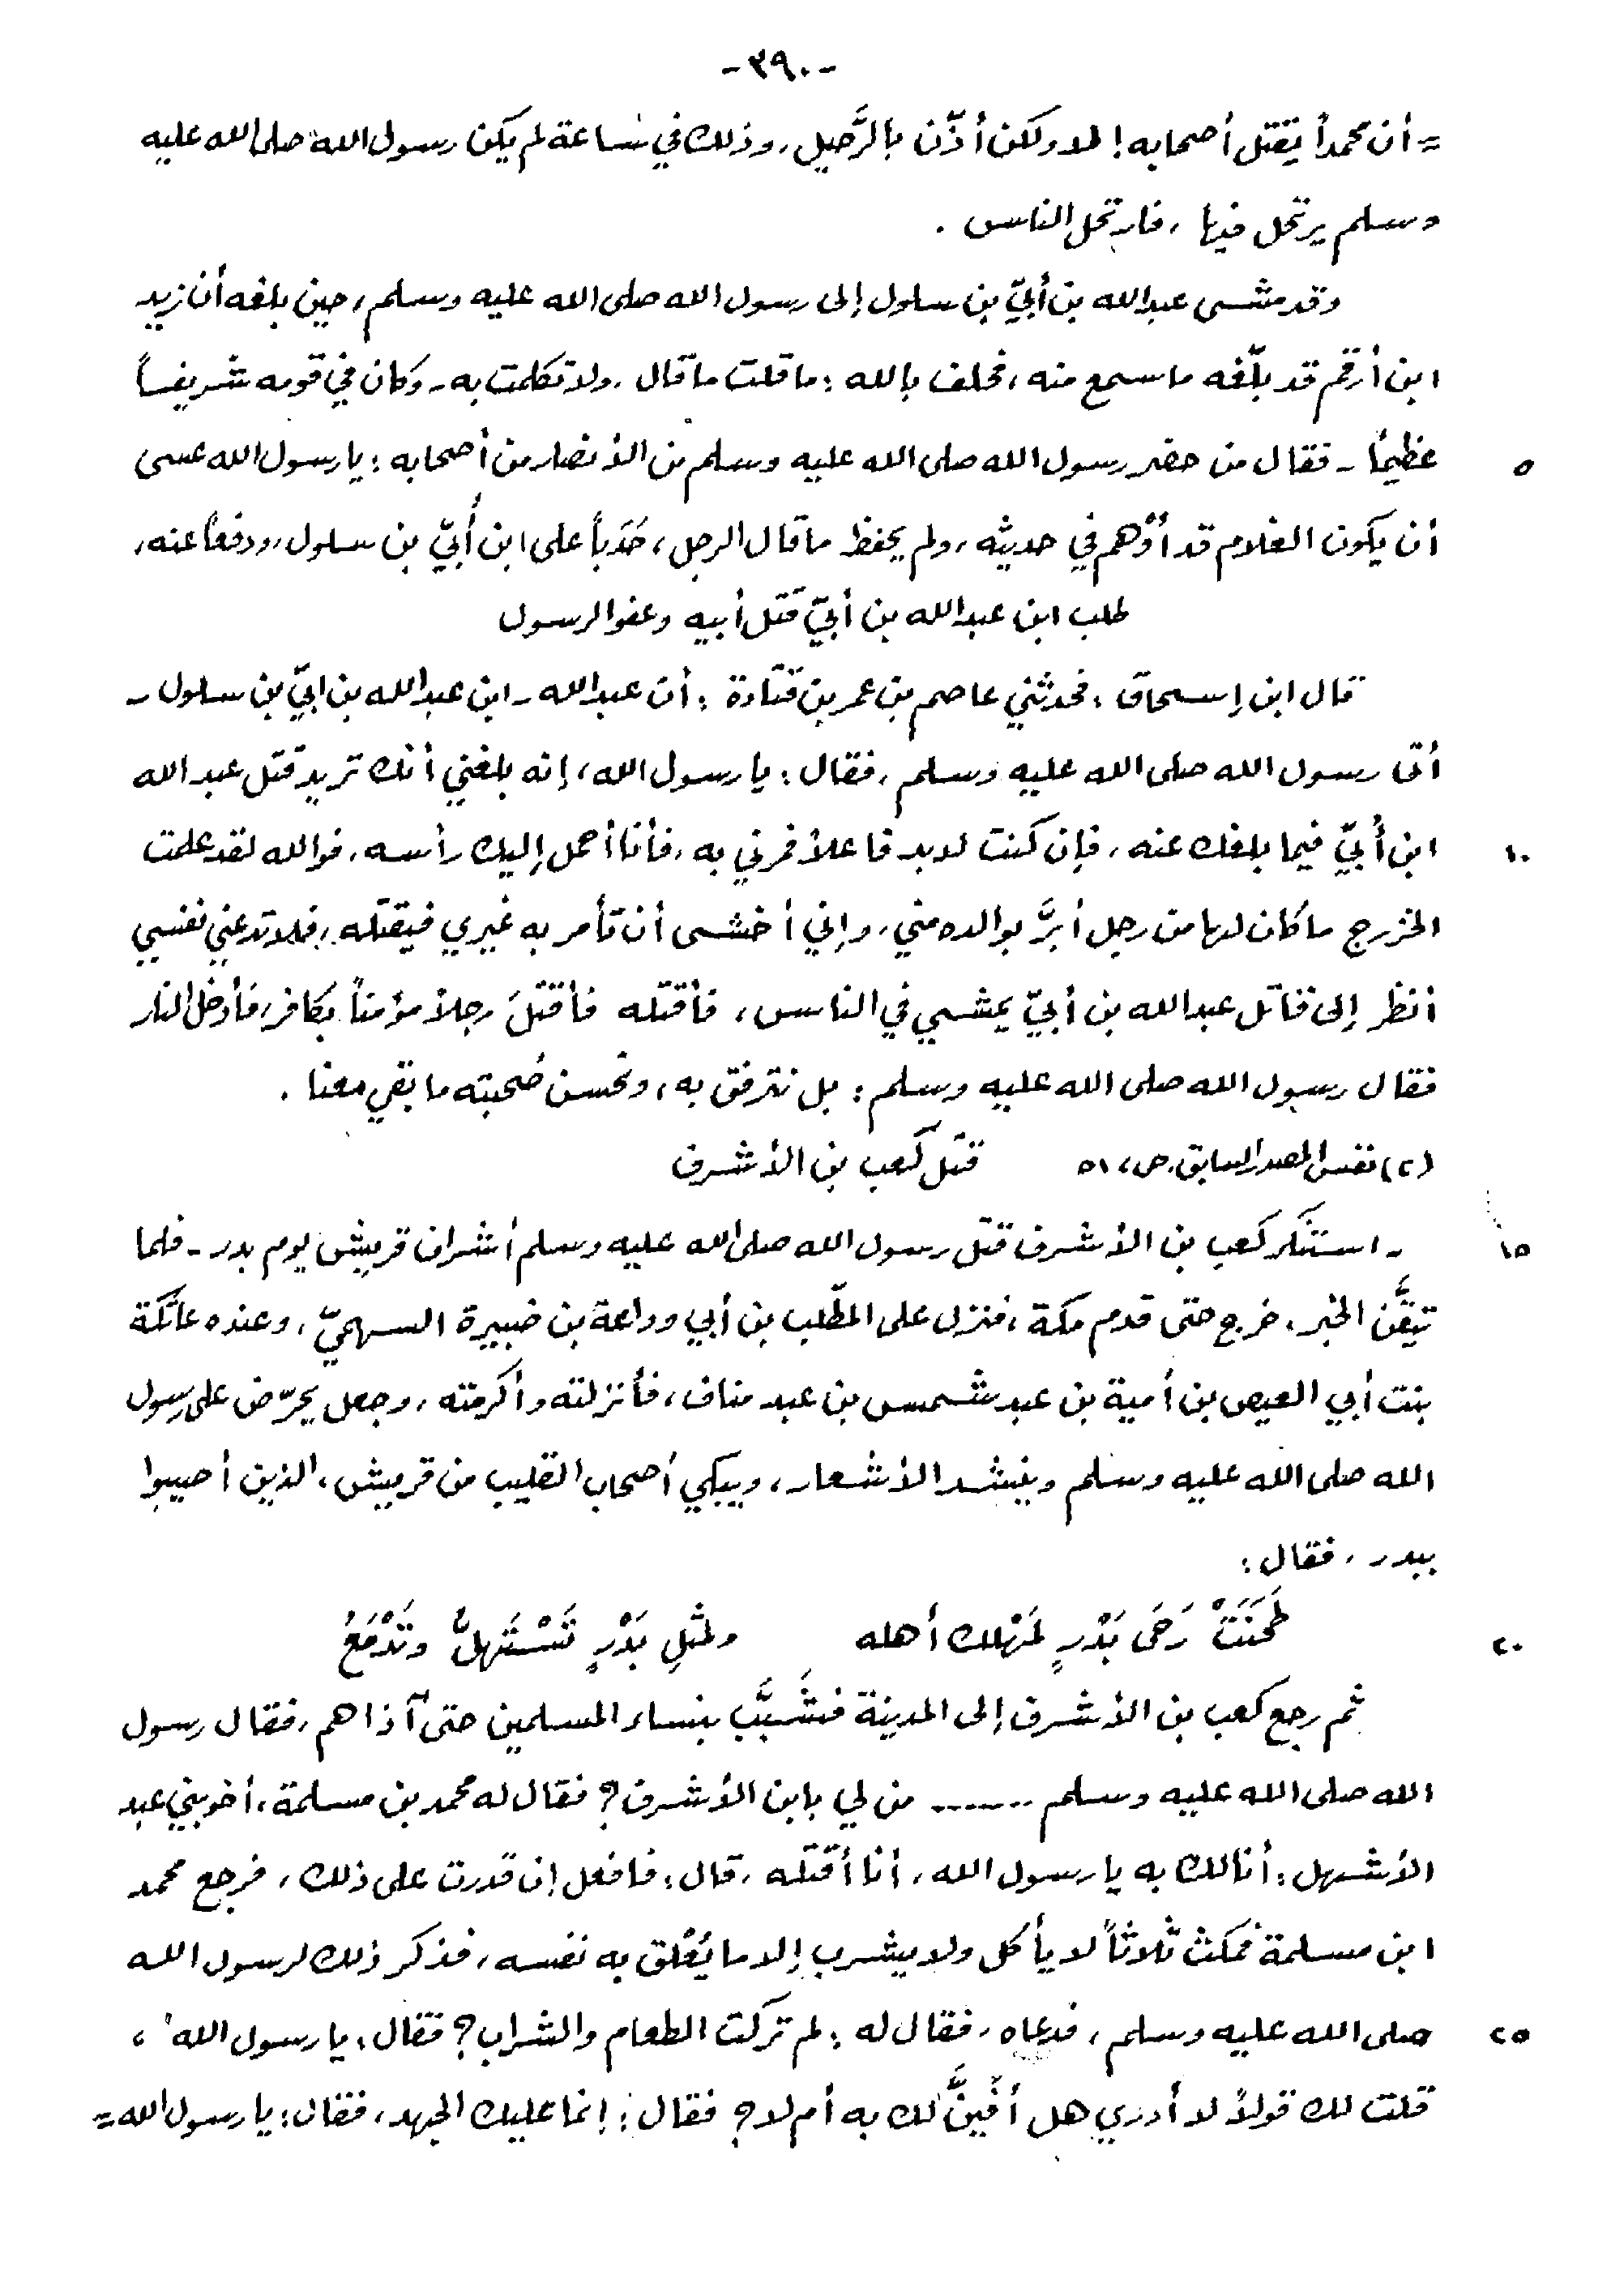 -٣٩٠-
= أن محمداً يقتل أصحابه! لا ولكن أذّن بالرَّحيل، وذلك في ساعة لم يكن رسول الله صلى الله عليه
وسلم يرتحل فيها، فارتحل الناس.
وقد مشى عبدالله بن أبيّ بن سلول إلى رسول الله صلى الله عليه وسلم، حين بلغه أن زيد
ابن أرقم قد بلّغه ما سمع منه، فحلف بالله: ما قلت ما قال، ولا تكلمت به- وكان في قومه شريفاً
٥ عظيماً- فقال من حضر رسول الله صلى الله عليه وسلم من الأنصار من أصحابه: يا رسول الله عسى
أن يكون الغلام قد أوْهم في حديثه، ولم يحفظ ما قال الرجل، حَدَباً على ابن أُبيّ بن سلول، ودفعاً عنه،
طلب ابن عبدالله بن أبيّ قتل أبيه وعفو الرسول
قال ابن إسحاق: فحدثني عاصم بن عمر بن قتادة: أن عبدالله- ابن عبدالله بن ابيّ بن سلول-
أتى رسول الله صلى الله عليه وسلم، فقال: يا رسول الله، إنه بلغني أنك تريد قتل عبد الله
١٠ ابن أُبيّ فيما بلغك عنه، فإن كنت لابد فاعلاً فمرني به، فأنا أحمل إليك رأسه، فوالله لقد علمت
الخزرج ما كان لها من رجل أبرَّ بوالده مني، وإني أخشى أن تأمر به غيري فيقتله، فلا تدعني نفسي
أنظر إلى قاتل عبدالله بن أبيّ يمشي في الناس، فأقتله فأقتلَ رجلاً مؤمناً بكافر، فأدخل النار
فقال رسول الله صلى الله عليه وسلم: بل نترفق به، ونحسن صُحبته ما بقي معنا.
(٢) نفس المصدر السابق، ص، ٥١ قتل كعب بن الأشرف
١٥ - استنكر كعب بن الأشرف قتل رسول الله صلى الله عليه وسلم أشراف قريش يوم بدر- فلما
تيقَّن الخبر، خرج حتى قدم مكة، فنزل على المطّلب بن أبي وداعة بن ضبيرة السهميّ، وعنده عاتكة
بنت أبي العيص بن أمية بن عبد شمس بن عبد مناف، فأنزلته وأكرمته، وجعل يحرّض على رسول
الله صلى الله عليه وسلم وينشد الأشعار، ويبكي أصحاب القليب من قريش، الذين أصيبوا
ببدر، فقال:
٢٠ طَحَنَتْ رَحَى بَدْرٍ لمَهْلك أهله ولمثلِ بَدْرٍ تَسْتَهلُّ وتَدْمَعُ
ثم رجع كعب بن الأشرف إلى المدينة فشَبَّب بنساء المسلمين حتى آذاهم، فقال رسول
الله صلى الله عليه وسلم ....... من لي بابن الأشرف؟ فقال له محمد بن مسلمة، أخو بني عبد
الأشهل: أنا لك به يا رسول الله، أنا أقتله، قال: فافعل إن قدرت على ذلك، فرجع محمد
ابن مسلمة فمكث ثلاثاً لا يأكل ولا يشرب إلا ما يُعْلق به نفسه، فذكر ذلك لرسول الله
٢٥ صلى الله عليه وسلم، فدعاه، فقال له: لم تركت الطعام والشراب؟ فقال: يا رسول الله،
قلت لك قولاً لا أدري هل أفينَّ لك به أم لا؟ فقال: إنما عليك الجهد، فقال: يا رسول الله=